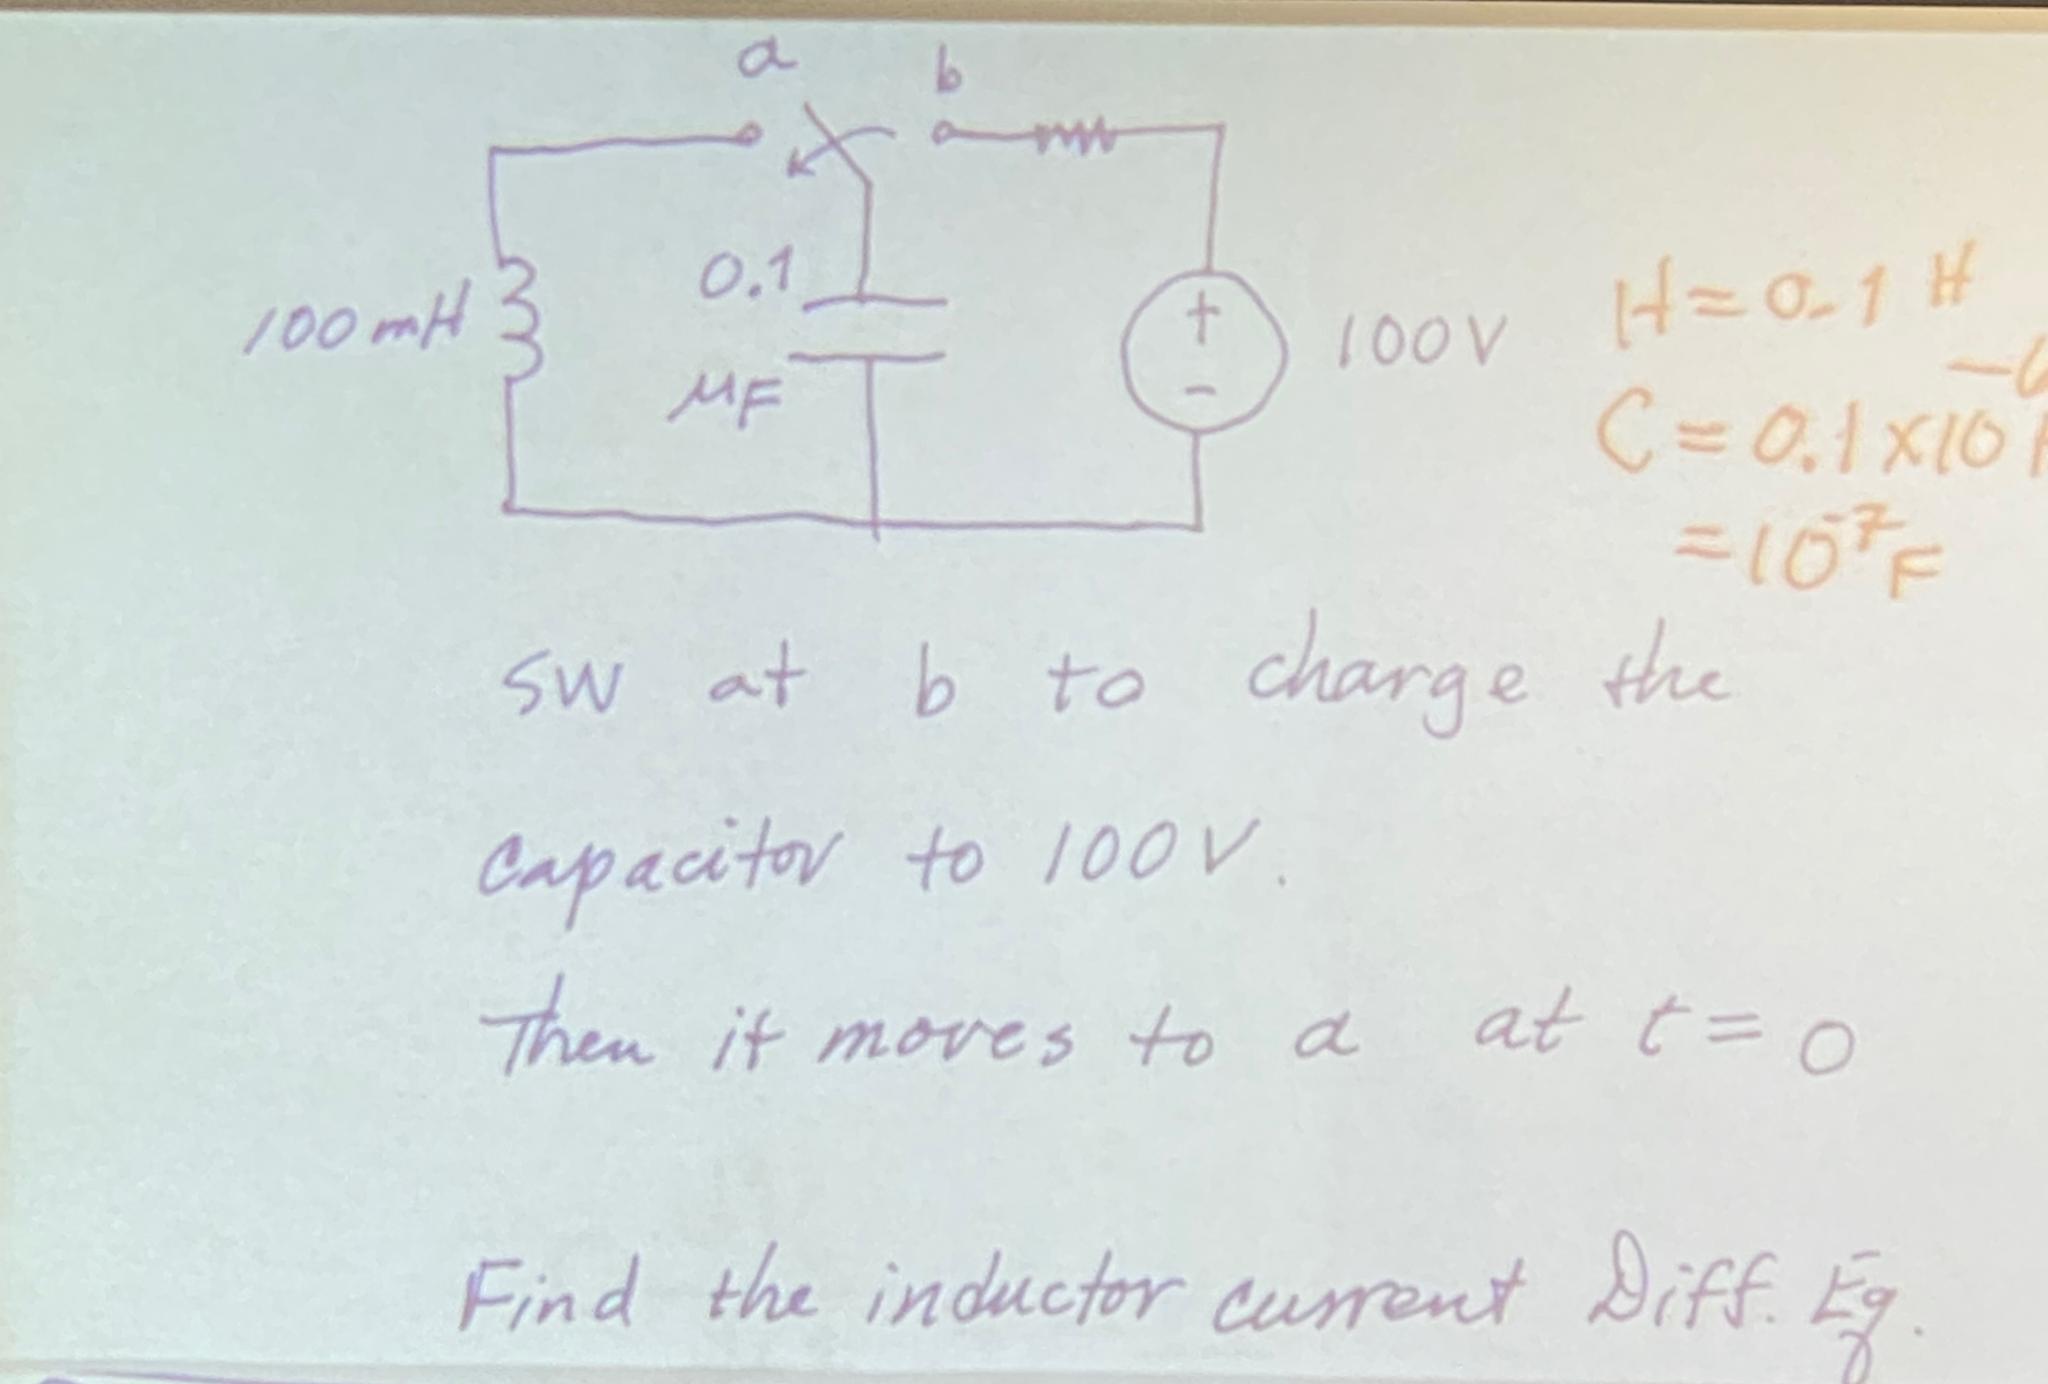 a b
0.1
100mH
+
-
100V
μF
H = 0.1 H
C = 0.1 x 10
= 10⁻⁷ F
SW at b to charge the
capacitor to 100V.
Then it moves to a at t = 0
Find the inductor current Diff. Eq.